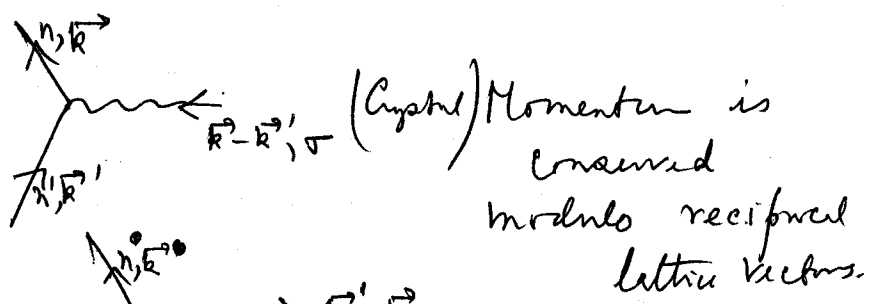 n, k⃗
k⃗ - k⃗', σ (Crystal) Momentum is
conserved
n', k⃗'
modulo reciprocal
lattice vectors.
n, k⃗
k⃗' - k⃗